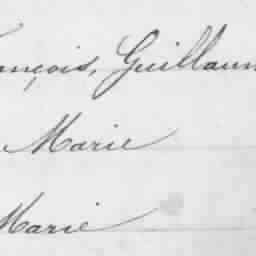 ançois, Guillaum
Marie
Marie